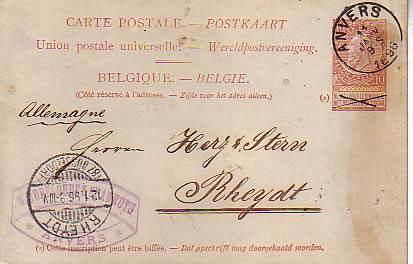 CARTE POSTALE. — POSTKAART
Union postale universelle. — Wereldpostvereeniging.
BELGIQUE. — BELGIE.
(Côté réservé à l'adresse. — Zijde voor het adres alleen.)
(*)
ANVERS
1896
10
Allemagne
Herren Herz & Stern
Rheydt
RHEYDT
ANVERS
(*) Cette inscription peut être biffée. — Dat opschrift mag doorgehaald worden.